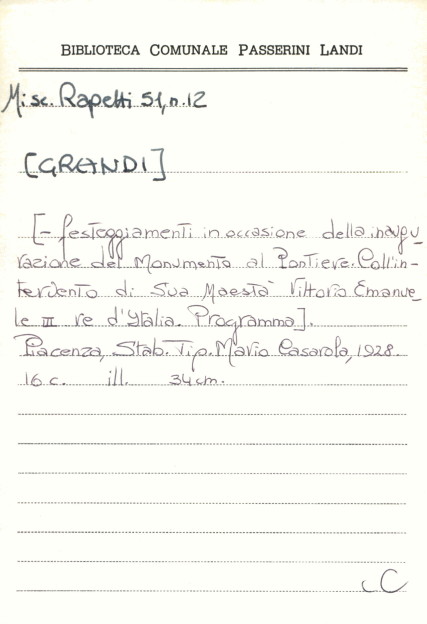 BIBLIOTECA COMUNALE PASSERINI LANDI
Misc. Rapetti 51, n. 12
[GRANDI]
[- festeggiamenti in occasione della inaugu_
razione del Monumento al Pontiere. Coll'in-
tervento di Sua Maestà Vittorio Emanue_
le III re d'Italia. Programma].
Piacenza, Stab. Tip. Mario Casarola, 1928.
16 c. ill. 34 cm.
C